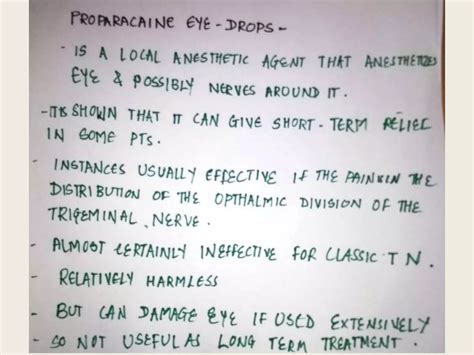 PROPARACAINE EYE-DROPS -
- IS A LOCAL ANESTHETIC AGENT THAT ANESTHETIZES
EYE & POSSIBLY NERVES AROUND IT.
- IT IS SHOWN THAT IT CAN GIVE SHORT-TERM RELIEF
IN SOME PTS.
- INSTANCES USUALLY EFFECTIVE IF THE PAIN IN THE
DISTRIBUTION OF THE OPTHALMIC DIVISION OF THE
TRIGEMINAL NERVE.
- ALMOST CERTAINLY INEFFECTIVE FOR CLASSIC TN.
- RELATIVELY HARMLESS
- BUT CAN DAMAGE EYE IF USED EXTENSIVELY
- SO NOT USEFUL AS LONG TERM TREATMENT.